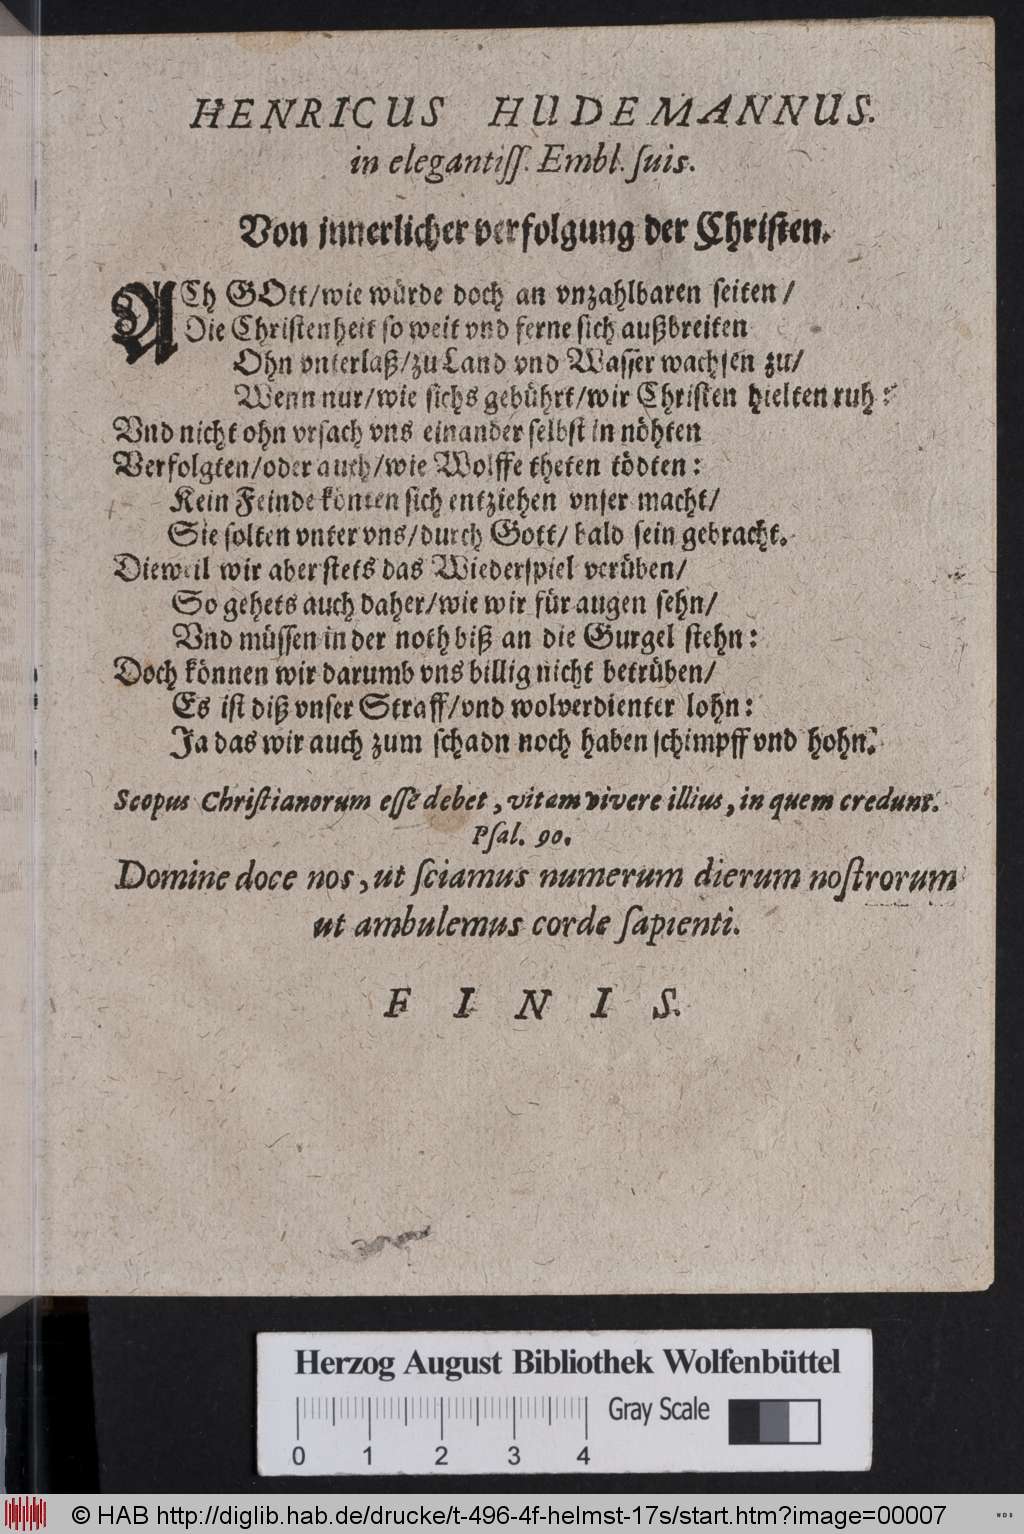 HENRICUS HUDEMANNUS.
in elegantiſſ. Embl. ſuis.
Von jnnerlicher verfolgung der Chriſten.
ACh GOtt/wie würde doch an vnzahlbaren ſeiten/
Die Chriſtenheit ſo weit vnd ferne ſich außbreiten
Ohn vnterlaß/zu Land vnd Waſſer wachſen zu/
Wenn nur/wie ſichs gebührt/wir Chriſten hielten ruh:
Vnd nicht ohn vrſach vns einander ſelbſt in nöhten
Verfolgten/oder auch/wie Wolffe theten tödten:
Kein Feinde könten ſich entziehen vnſer macht/
Sie ſolten vnter vns/durch Gott/bald ſein gebracht.
Dieweil wir aber ſtets das Wiederſpiel verüben/
So gehets auch daher/wie wir für augen ſehn/
Vnd müſſen in der noth biß an die Gurgel ſtehn:
Doch können wir darumb vns billig nicht betrüben/
Es iſt diß vnſer Straff/vnd wolverdienter lohn:
Ja das wir auch zum ſchadn noch haben ſchimpff vnd hohn.
Scopus Chriſtianorum eſſe debet, vitam vivere illius, in quem credunt.
Pſal. 90.
Domine doce nos, ut ſciamus numerum dierum noſtrorum
ut ambulemus corde ſapienti.
FINIS.
Herzog August Bibliothek Wolfenbüttel
Gray Scale
0 1 2 3 4
© HAB http://diglib.hab.de/drucke/t-496-4f-helmst-17s/start.htm?image=00007